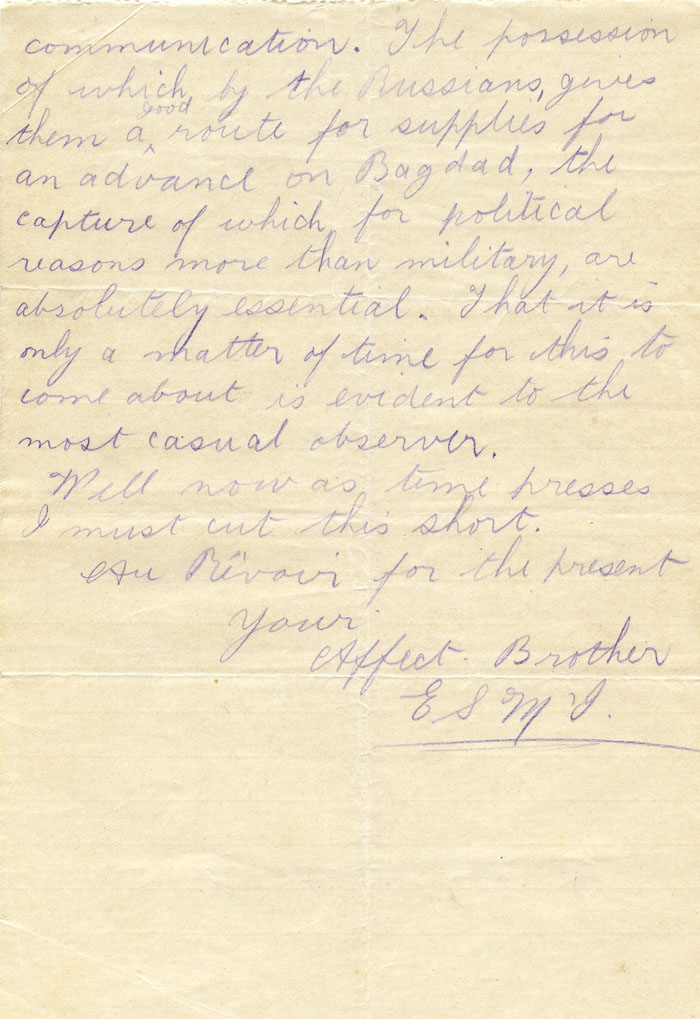 communication. The possession
of which, by the Russians, gives
good
them a route for supplies for
an advance on Bagdad, the
capture of which, for political
reasons more than military, are
absolutely essential. That it is
only a matter of time for this to
come about is evident to the
most casual observer.
Well now as time presses
I must cut this short.
Au Révoir for the present
Your
Affect. Brother
E S M J.